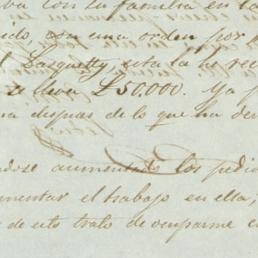 ba con la familia en la
ido, con una orden por
Lasquetty, esta la he rec
se lleva £50.000. Ya
na despues de lo que ha der
dose aumentado los pedi
mentar el trabajo en ella,
de esto trato de ocuparme e